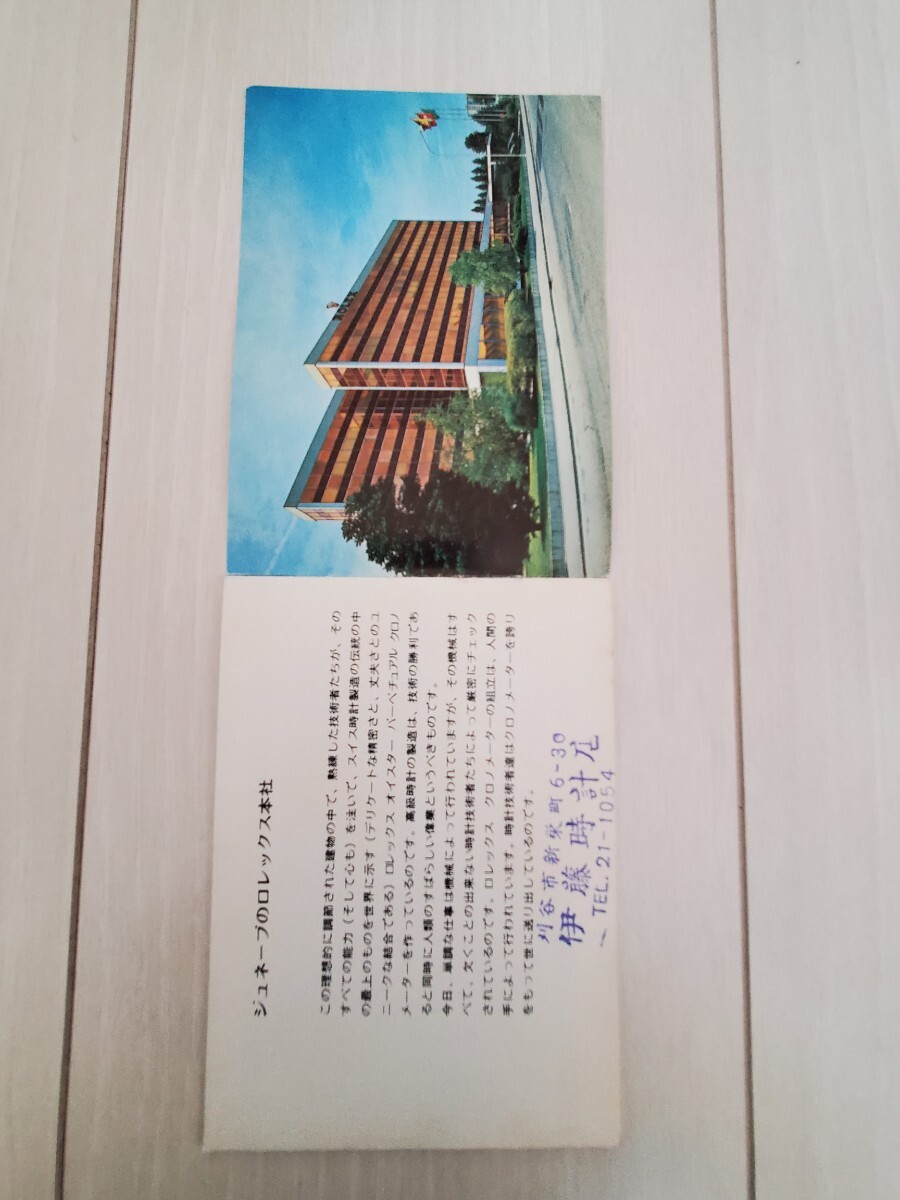 ROLEX
ジュネーブのロレックス本社
この理想的に調節された建物の中で、熟練した技術者たちが、その
すべての能力(そして心も)を注いで、スイス時計製造の伝統の中
の最上のものを世界に示す(デリケートな精密さと、丈夫さとのユ
ニークな結合である)ロレックス オイスター パーペチュアル クロノ
メーターを作っているのです。高級時計の製造は、技術の勝利であ
ると同時に人類のすばらしい偉業というべきものです。
今日、単調な仕事は機械によって行われていますが、その機械はす
べて、欠くことの出来ない時計技術者たちによって厳密にチェック
されているのです。ロレックス クロノメーターの組立は、人間の
手によって行われています。時計技術者達はクロノメーターを誇り
をもって世に送り出しているのです。
刈谷市新栄町6-30
伊藤時計店
TEL.21-1054